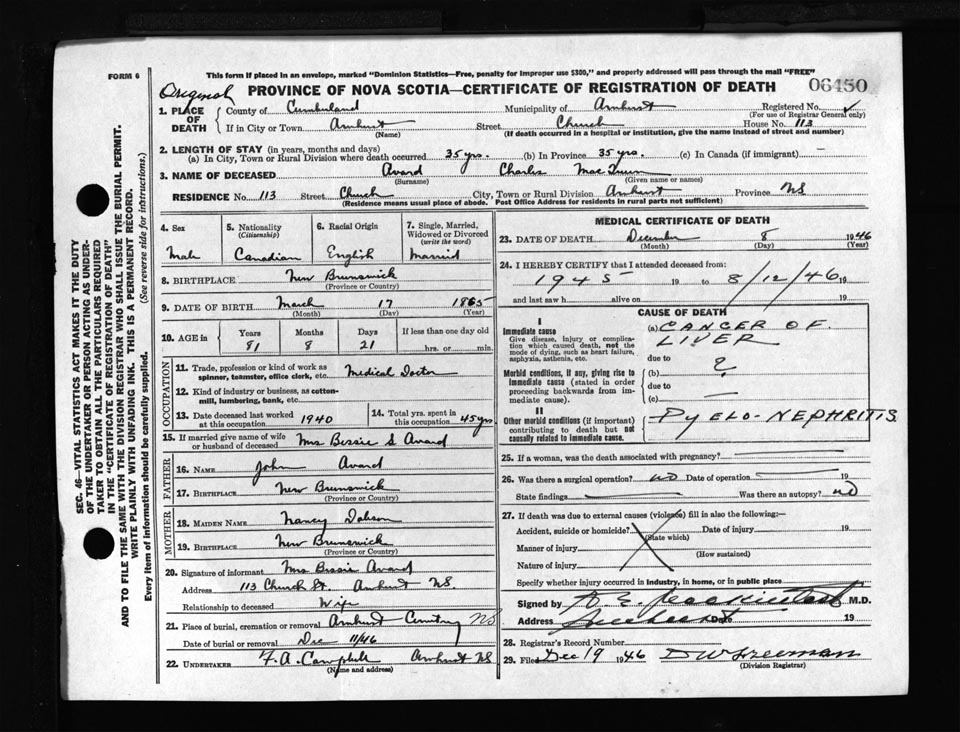 FORM 6
This form if placed in an envelope, marked "Dominion Statistics—Free, penalty for improper use $300," and properly addressed will pass through the mail "FREE"
Original
PROVINCE OF NOVA SCOTIA—CERTIFICATE OF REGISTRATION OF DEATH
06450
1. PLACE OF DEATH
County of Cumberland Municipality of Amherst Registered No.
(For use of Registrar General only)
If in City or Town Amherst Street Church House No. 113
(Name) (If death occurred in a hospital or institution, give the name instead of street and number)
2. LENGTH OF STAY (in years, months and days)
(a) In City, Town or Rural Division where death occurred 35 yrs. (b) In Province 35 yrs. (c) In Canada (if immigrant) —
3. NAME OF DECEASED Avard Charles
(Surname) (Given name or names)
RESIDENCE No. 113 Street Church City, Town or Rural Division Amherst Province NS
(Residence means usual place of abode. Post Office Address for residents in rural parts not sufficient)
4. Sex
Male
5. Nationality
(Citizenship)
Canadian
6. Racial Origin
English
7. Single, Married, Widowed or Divorced
(write the word)
Married
8. BIRTHPLACE New Brunswick
(Province or Country)
9. DATE OF BIRTH March 17 1865
(Month) (Day) (Year)
10. AGE in
Years Months Days If less than one day old
81 8 21 hrs. or min.
OCCUPATION
11. Trade, profession or kind of work as spinner, teamster, office clerk, etc. Medical Doctor
12. Kind of industry or business, as cotton-mill, lumbering, bank, etc.
13. Date deceased last worked at this occupation 1940
14. Total yrs. spent in this occupation 45 yrs.
15. If married give name of wife or husband of deceased Mrs Bessie S Avard
FATHER
16. NAME John Avard
17. BIRTHPLACE New Brunswick
MOTHER
18. MAIDEN NAME Nancy Dobson
19. BIRTHPLACE New Brunswick
(Province or Country)
20. Signature of informant Mrs Bessie Avard
Address 113 Church St. Amherst NS.
Relationship to deceased Wife
21. Place of burial, cremation or removal Amherst Cemetery NS
Date of burial or removal Dec 11/46
22. UNDERTAKER F. A. Campbell Amherst NS
(Name and address)
MEDICAL CERTIFICATE OF DEATH
23. DATE OF DEATH December 8 1946
(Month) (Day) (Year)
24. I HEREBY CERTIFY that I attended deceased from:
1945 19 to 8/12/46 19
and last saw h alive on 19
CAUSE OF DEATH
I
Immediate cause
Give disease, injury or complication which caused death, not the mode of dying, such as heart failure, asphyxia, asthenia, etc.
(a) CANCER OF LIVER
due to
Morbid conditions, if any, giving rise to immediate cause (stated in order proceeding backwards from immediate cause)
(b) ?
due to
(c) —
II
Other morbid conditions (if important) contributing to death but not causally related to immediate cause.
PYELO-NEPHRITIS
25. If a woman, was the death associated with pregnancy? —
26. Was there a surgical operation? NO Date of operation — 19
State findings — Was there an autopsy? NO
27. If death was due to external causes (violence) fill in also the following:—
Accident, suicide or homicide? Date of injury 19
(State which)
Manner of injury
(How sustained)
Nature of injury
Specify whether injury occurred in industry, in home, or in public place
Signed by M.D.
Address Amherst Date 19
28. Registrar's Record Number
29. Filed Dec 19 1946 D W Freeman
(Division Registrar)
SEC. 46—VITAL STATISTICS ACT MAKES IT THE DUTY
OF THE UNDERTAKER OR PERSON ACTING AS UNDER-
TAKER TO OBTAIN ALL THE PARTICULARS REQUIRED
IN THE "CERTIFICATE OF REGISTRATION OF DEATH"
AND TO FILE THE SAME WITH THE DIVISION REGISTRAR WHO SHALL ISSUE THE BURIAL PERMIT.
WRITE PLAINLY WITH UNFADING INK. THIS IS A PERMANENT RECORD.
Every item of information should be carefully supplied. (See reverse side for instructions.)